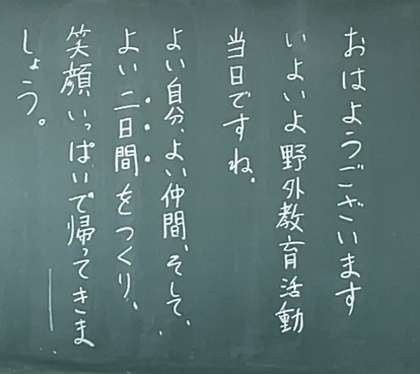 おはようございます
いよいよ野外教育活動
当日ですね。
よい自分、よい仲間、そして、
よい二日間をつくり、
笑顔いっぱいで帰ってきま
しょう。